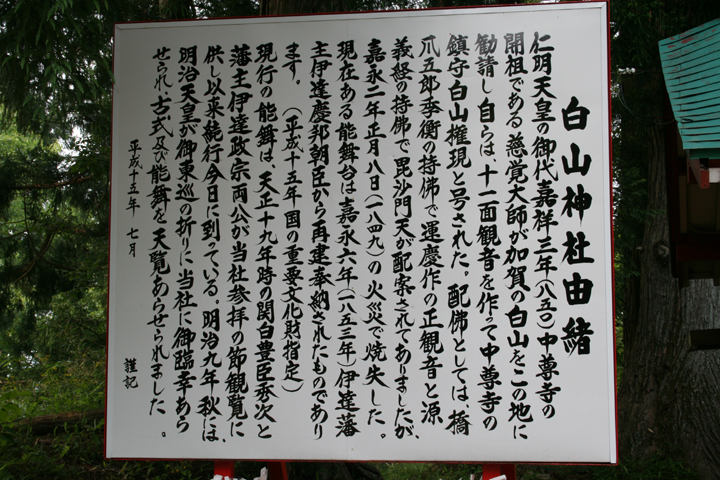 白山神社由緒
仁明天皇の御代嘉祥三年(八五〇)中尊寺の
開祖である慈覚大師が加賀の白山をこの地に
勧請し自らは、十一面観音を作って中尊寺の
鎮守白山権現と号された。配佛としては、橋
爪五郎季衡の持佛で運慶作の正観音と源
義経の持佛で毘沙門天が配案されてありましたが、
嘉永二年正月八日(一八四九)の火災で焼失した。
現在ある能舞台は嘉永六年(一八五三年)伊達藩
主伊達慶邦朝臣から再建奉納されたものであり
ます。(平成十五年国の重要文化財指定)
現行の能舞は、天正十九年時の関白豊臣秀次と
藩主伊達政宗両公が当社参拝の節観覧に
供し以来続行今日に到っている。明治九年秋には、
明治天皇が御東巡の折りに当社に御臨幸あら
せられ古式及び能舞を天覧あらせられました。
平成十五年 七月
謹記